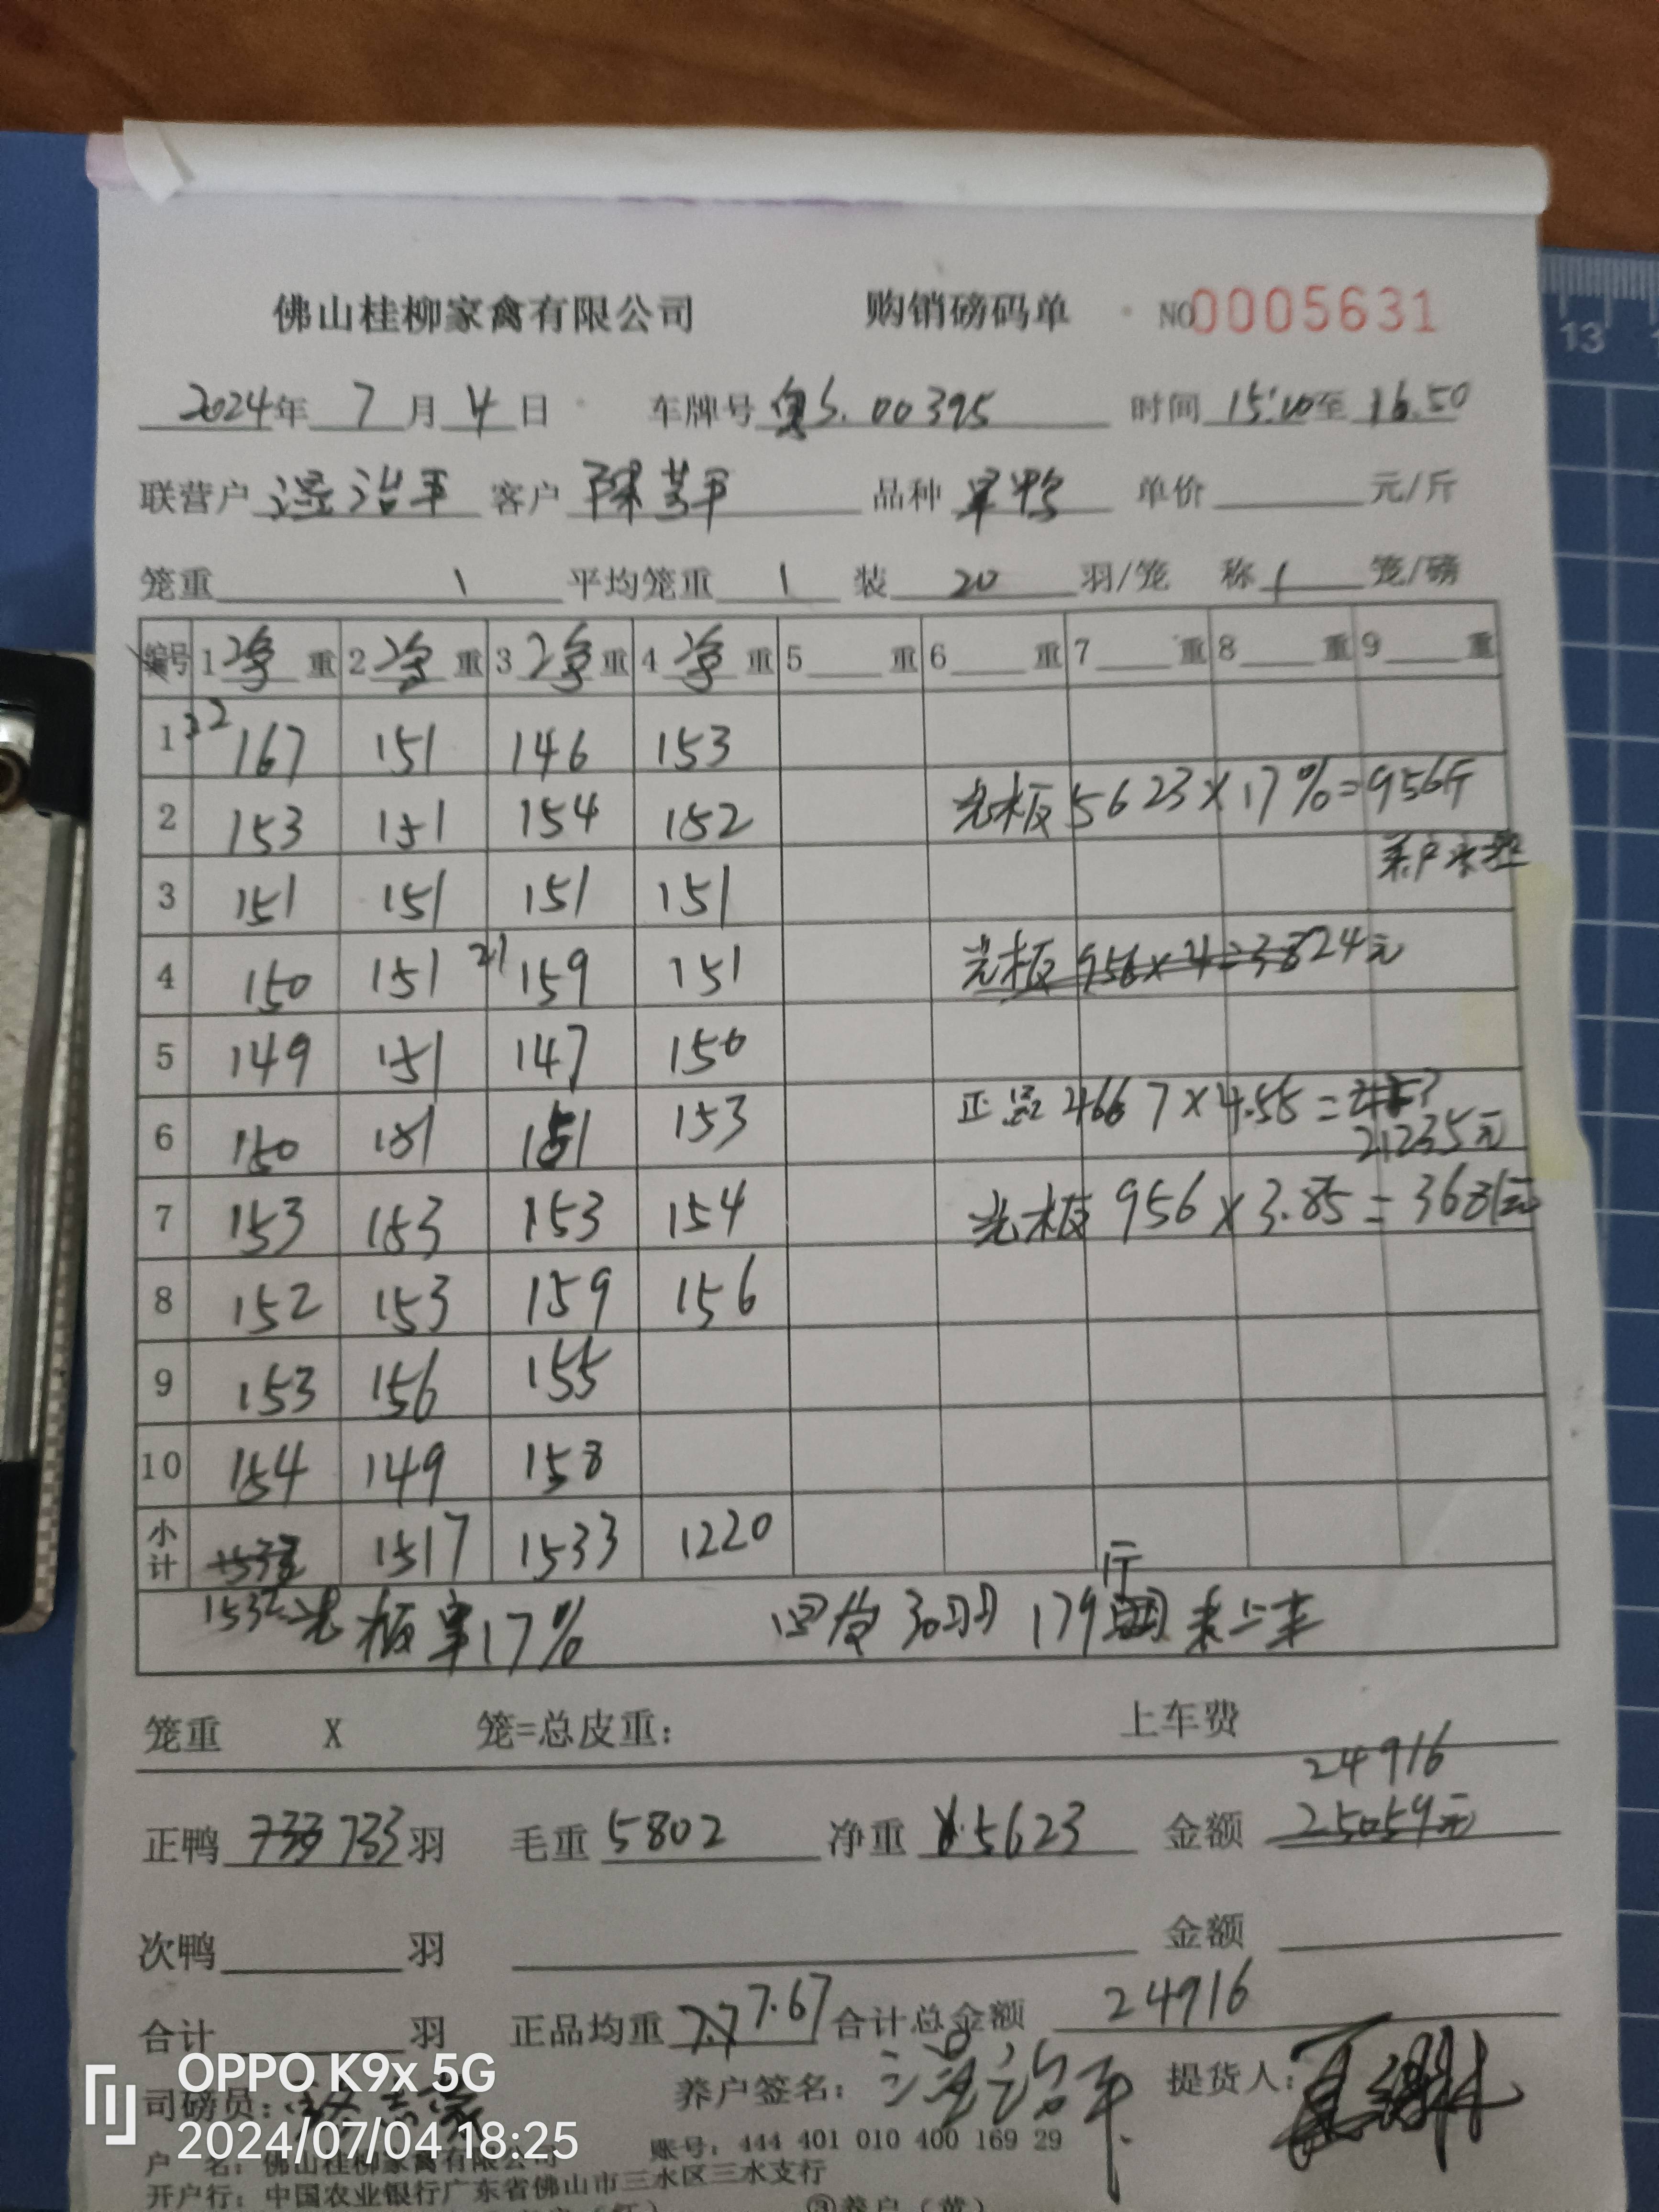 佛山桂柳家禽有限公司 购销磅码单 NO0005631
2024年 7 月 4 日 车牌号 粤S.00395 时间 15:10至 16.50
联营户 治平 客户 陈 平 品种 鸭 单价 元/斤
笼重 1 平均笼重 1 装 20 羽/笼 称 1 笼/磅
编号 1 重 2 重 3 重 4 重 5 重 6 重 7 重 8 重 9 重
1 22 167 151 146 153
2 153 151 154 152 光板 5623×17%=956斤
3 151 151 151 151
4 150 151 21 159 151 光板 956×4=3824元
5 149 151 147 150
6 150 151 151 153 正品 4667×4.55= 21235元
7 153 153 153 154 光板 956×3.85=3681元
8 152 153 159 156
9 153 156 155
10 154 149 158
小计 1532 1517 1533 1220
1532 光板率17% 回收30羽 179斤 未上车
笼重 X 笼=总皮重: 上车费
24916
正鸭 733 733 羽 毛重 5802 净重 5623 金额 25059元
次鸭 羽 金额
合计 羽 正品均重 7.7 7.67 合计总金额 24916
司磅员: 养户签名: 治平 提货人:
户 名: 佛山桂柳家禽有限公司 账号: 444 401 010 400 169 29
开户行: 中国农业银行广东省佛山市三水区三水支行
③养户（黄）
OPPO K9x 5G
2024/07/04 18:25